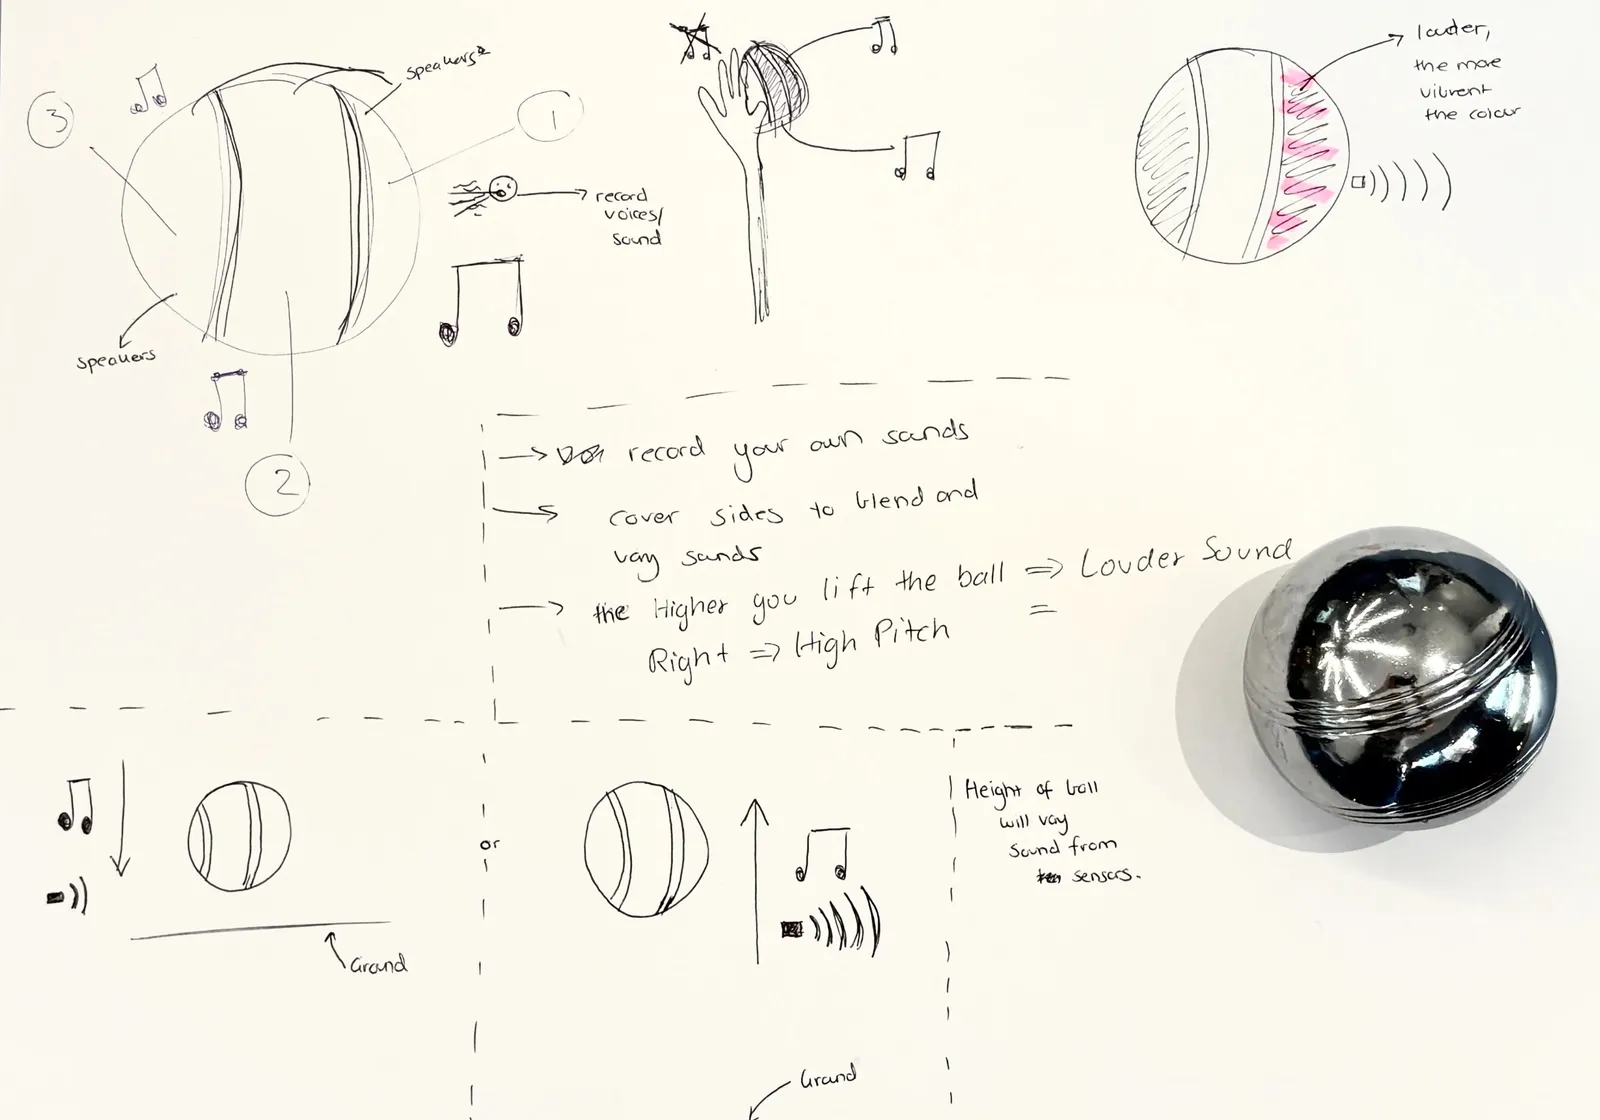 speakers
3
1
record
voices/
sound
speakers
2
louder,
the more
vibrent
the colour
record your own sounds
cover sides to blend and
vary sounds
the Higher you lift the ball => Louder Sound
=
Right => High Pitch
or
Ground
Height of ball
will vary
sound from
sensors.
Ground